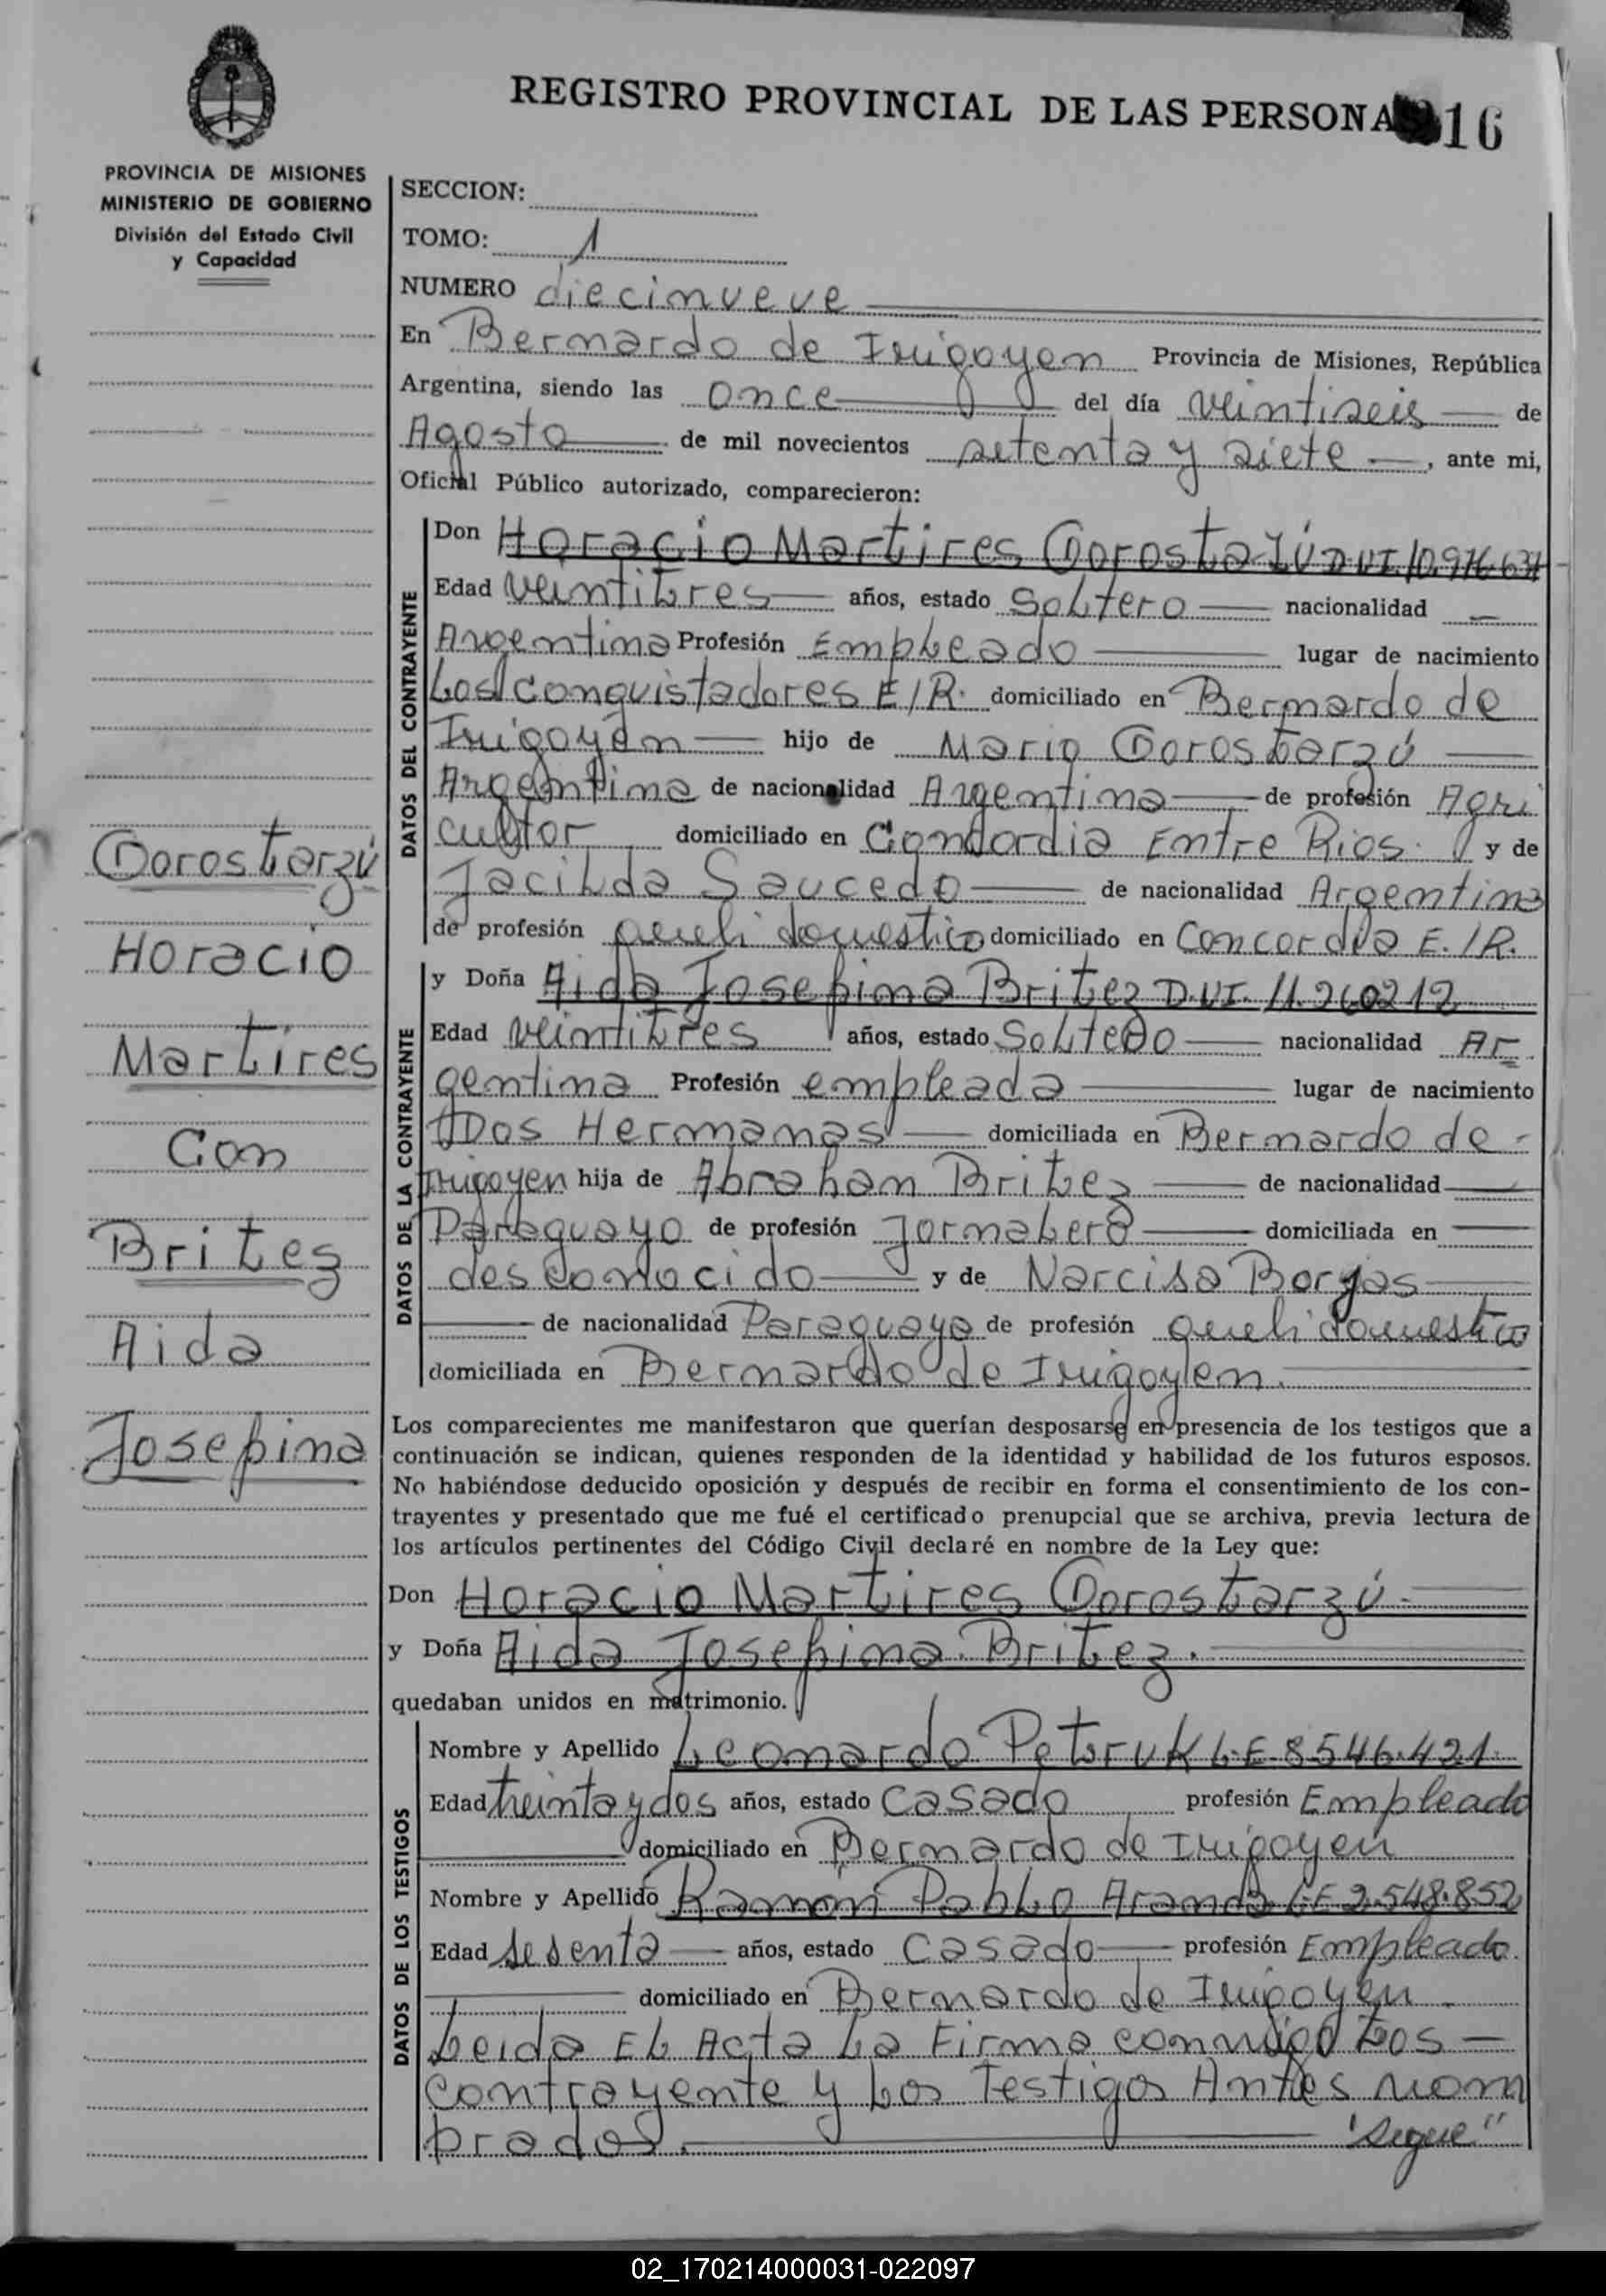 REGISTRO PROVINCIAL DE LAS PERSONAS 16
PROVINCIA DE MISIONES
MINISTERIO DE GOBIERNO
División del Estado Civil
y Capacidad
SECCION:
TOMO: 1
NUMERO diecinueve
En Bernardo de Irigoyen Provincia de Misiones, República
Argentina, siendo las once del día veintiseis de
Agosto de mil novecientos setenta y siete, ante mi,
Oficial Público autorizado, comparecieron:
DATOS DEL CONTRAYENTE
Don Horacio Martires Dorosta D.NI. 10.916.634
Edad veintitres años, estado Soltero nacionalidad
Argentina Profesión Empleado lugar de nacimiento
Los Conquistadores E/R. domiciliado en Bernardo de
Irigoyen hijo de Mario Dorostarzú
Argentina de nacionalidad Argentina de profesión Agri
cultor domiciliado en Concordia Entre Rios. y de
Jacilda Saucedo de nacionalidad Argentina
de profesión domestico domiciliado en Concordia E./R.
DATOS DE LA CONTRAYENTE
y Doña Aida Josefina Britez D.NI. 11.260212
Edad veintitres años, estado Soltero nacionalidad Ar
gentina Profesión empleada lugar de nacimiento
Dos Hermanas domiciliada en Bernardo de
Irigoyen hija de Abraham Britez de nacionalidad
Paraguayo de profesión Jornalero domiciliada en
desconocido y de Narcisa Borjas
de nacionalidad Paraguaya de profesión domestico
domiciliada en Bernardo de Irigoyen.
Los comparecientes me manifestaron que querían desposarse en presencia de los testigos que a
continuación se indican, quienes responden de la identidad y habilidad de los futuros esposos.
No habiéndose deducido oposición y después de recibir en forma el consentimiento de los con-
trayentes y presentado que me fué el certificado prenupcial que se archiva, previa lectura de
los artículos pertinentes del Código Civil declaré en nombre de la Ley que:
Don Horacio Martires Dorostarzú
y Doña Aida Josefina Britez.
quedaban unidos en matrimonio.
DATOS DE LOS TESTIGOS
Nombre y Apellido Leonardo Petruk L.E. 8546.421.
Edad treinta y dos años, estado Casado profesión Empleado
domiciliado en Bernardo de Irigoyen
Nombre y Apellido Ramon Pablo Aranda L.E 2.548.852
Edad sesenta años, estado Casado profesión Empleado.
domiciliado en Bernardo de Irigoyen.
Leida El Acta La Firma conmigo Los
contrayente y Los Testigos Antes nom
brados. "Sigue"
Dorostarzú
Horacio
Martires
Con
Britez
Aida
Josefina
02_170214000031-022097